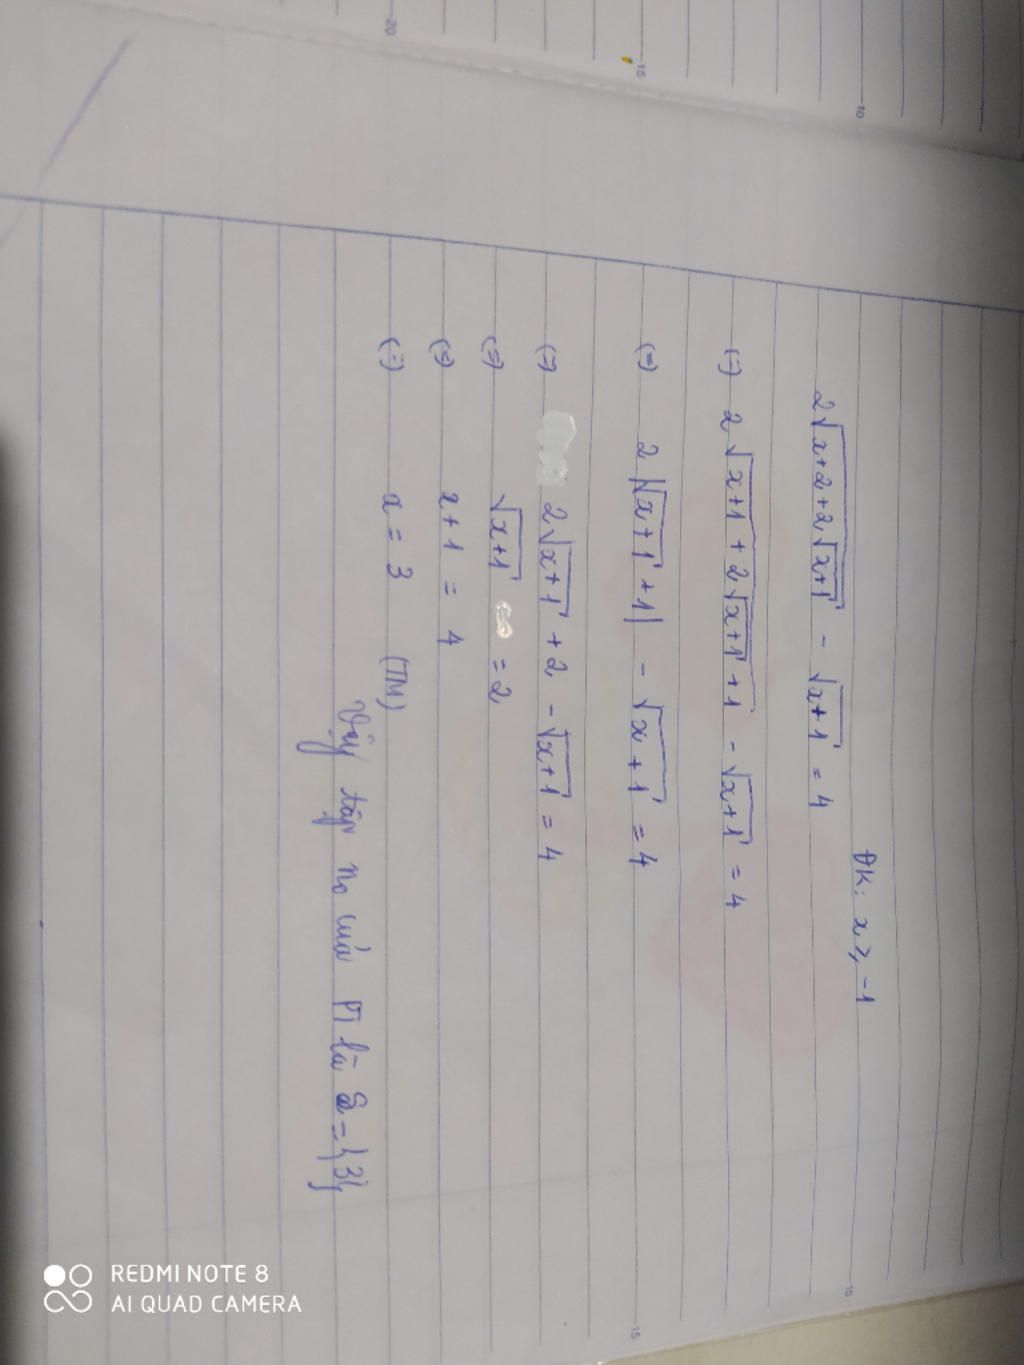 ĐK: x ≥ -1
2√(x+2+2√(x+1)) - √(x+1) = 4
(=) 2√(x+1+2√(x+1)+1) - √(x+1) = 4
(=) 2|√(x+1)+1| - √(x+1) = 4
(=) 2√(x+1) + 2 - √(x+1) = 4
(=) √(x+1) = 2
(=) x+1 = 4
(=) x = 3 (TM)
Vậy tập no của PT là S = {3}
20
15
10
10
15
REDMI NOTE 8
AI QUAD CAMERA